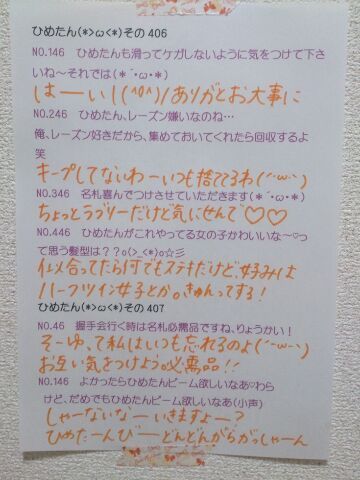 ひめたん(*>ω<*)その406
NO.146　ひめたんも滑ってケガしないように気をつけて下さ
いね〜それでは(＊´･ω･＊)
はーい！(^0^)/ありがとお大事に
NO.246　ひめたん、レーズン嫌いなのね…
俺、レーズン好きだから、集めておいてくれたら回収するよ
笑
キープしてないわーいつも捨ててるわ(´･ω･`)
NO.346　名札喜んでつけさせていただきます(＊´･ω･＊)
ちょっとラブリーだけど気にせんで♡♡
NO.446　ひめたんがこれやってる女の子かわいいな〜♡っ
て思う髪型は？？o(>_<*)o☆彡
似合ってたら何でもステキだけど、好みは
ハーフツイン女子とか。きゅんってする！
ひめたん(*>ω<*)その407
NO.46　握手会行く時は名札必需品ですね、りょうかい！
そーゆって私はいつも忘れるのよ(´･ω･`)
お互い気をつけよう。必需品！！
NO.146　よかったらひめたんビーム欲しいなあ♡わら
けど、だめでもひめたんビーム欲しいなあ(小声)
しゃーないなーいきますよー？
ひめたーんびーどんどんがらがっしゃーん